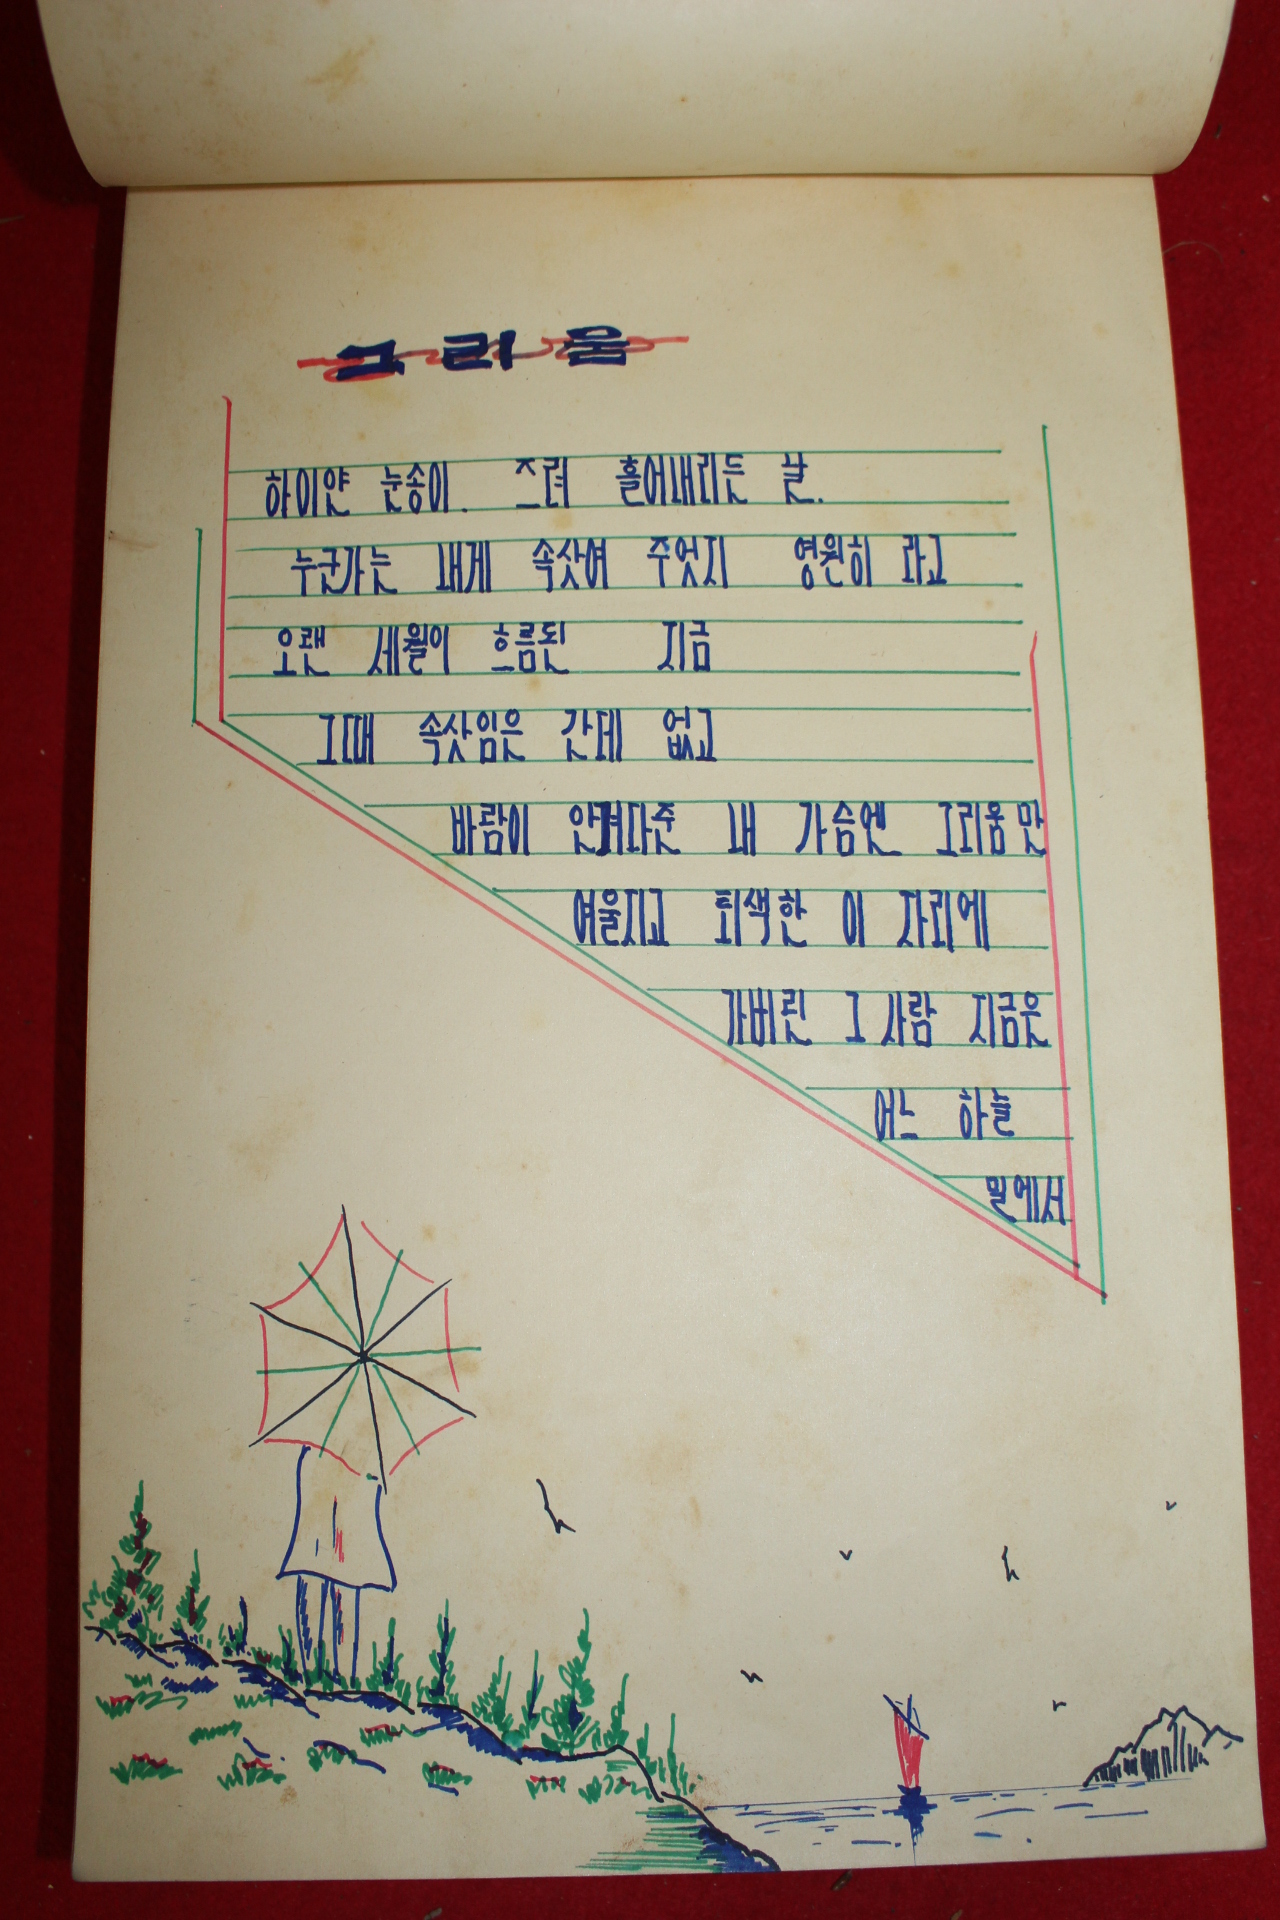 그리움
하이얀 눈송이. 즈려 흘어내리든 날.
누군가는 내게 속삿여 주엇지 영원히 라고
오랜 세월이 흐름된 지금
그때 속삿임은 간데 없고
바람이 안겨다준 내 가슴엔 그리움만
여울지고 퇴색한 이 자리에
가버린 그 사람 지금은
어느 하늘
밑에서